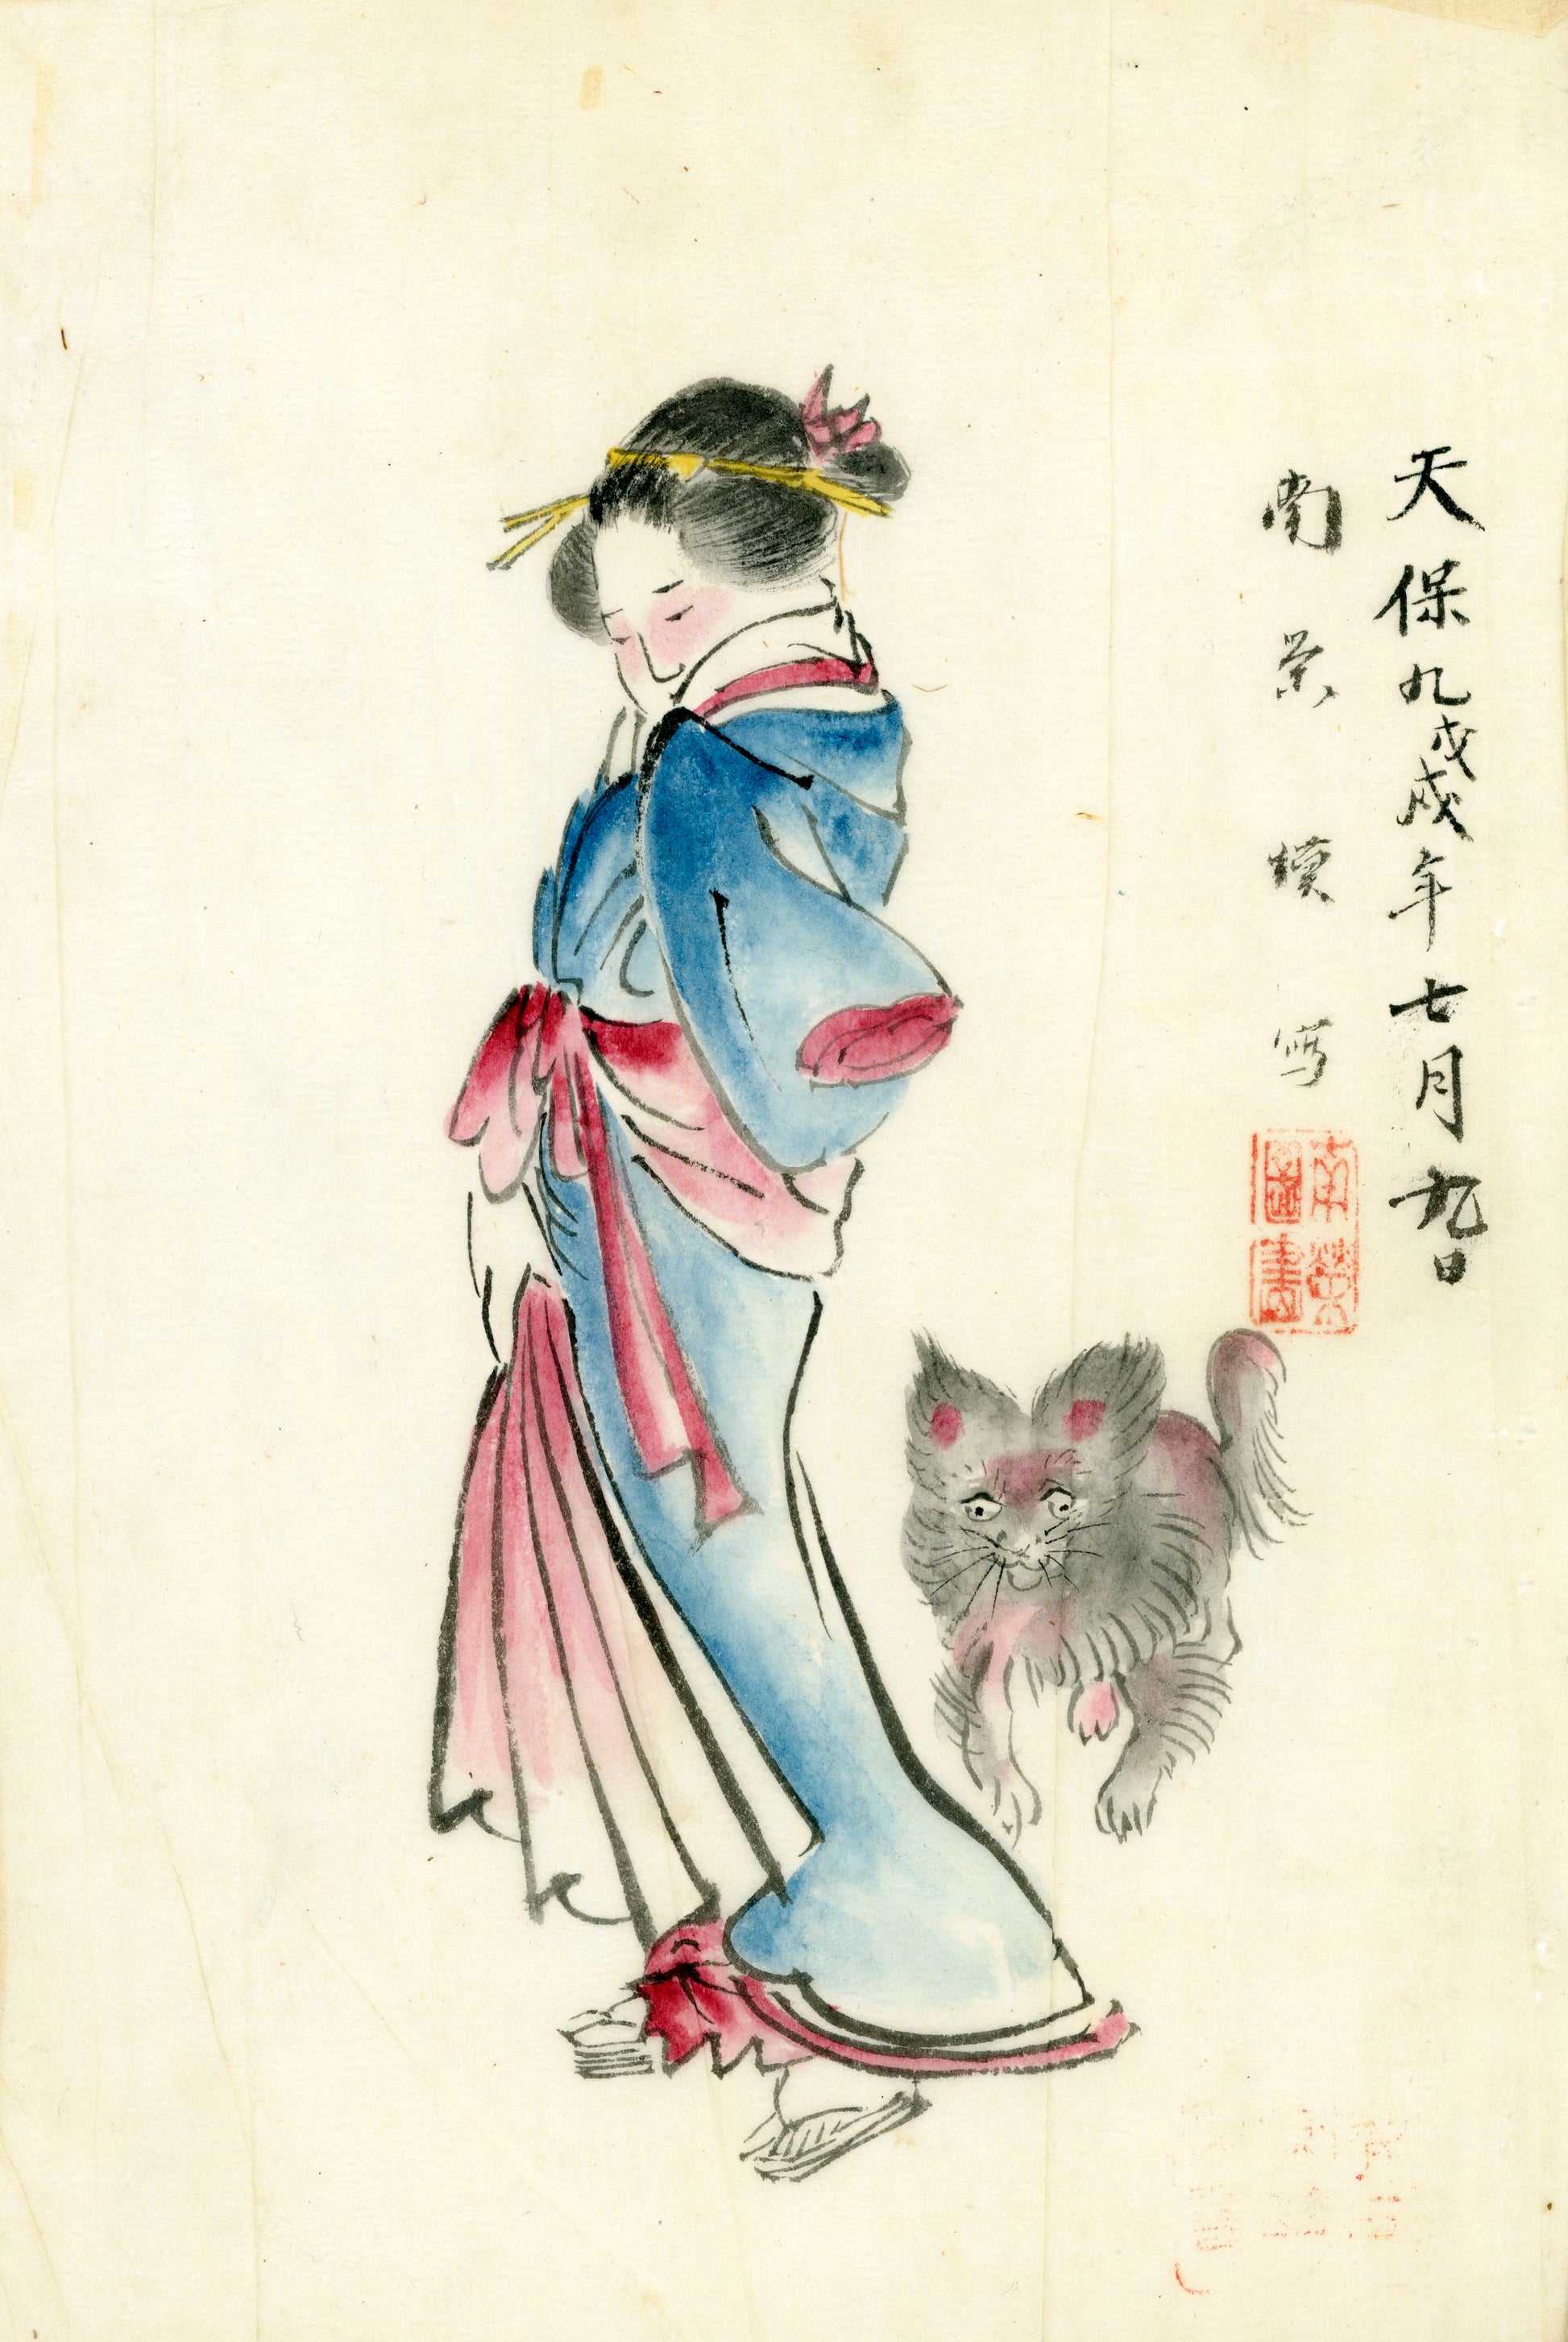 天保九戊戌年七月九日
南栄模写
南榮圖書